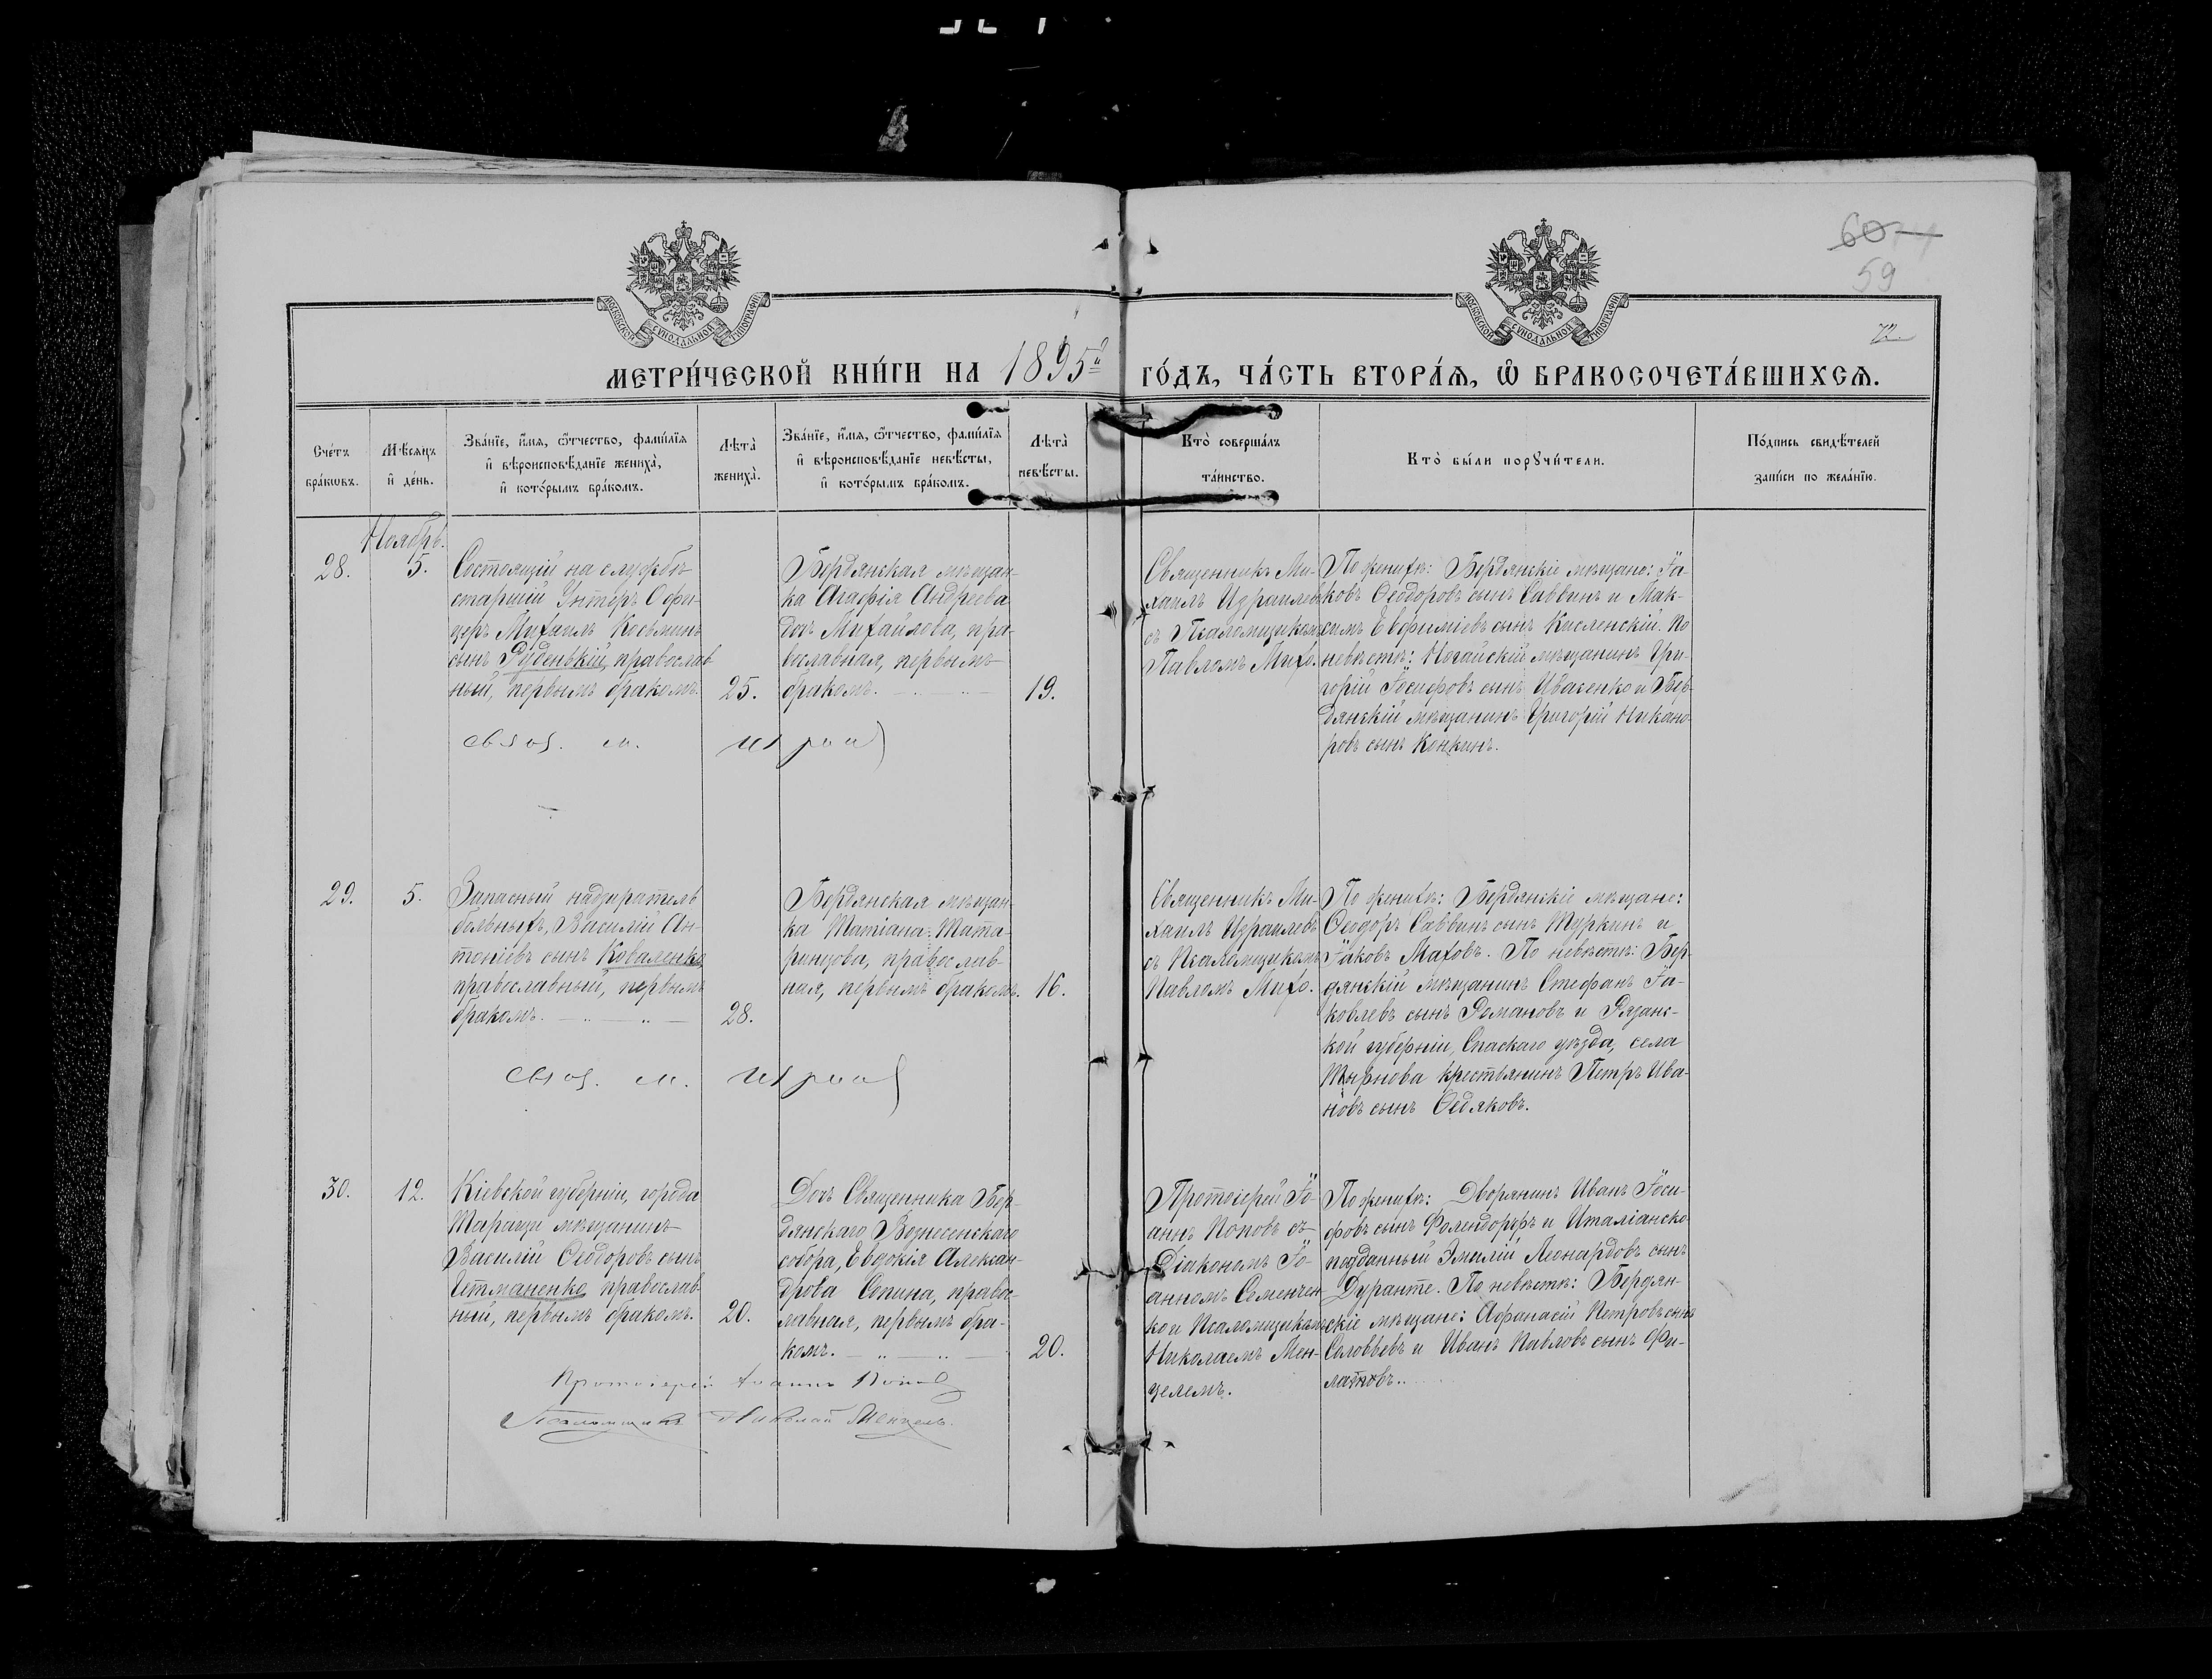 60
59
72.
МОСКОВСКОЙ СѴНОДАЛЬНОЙ ТИПОГРАФІИ
МОСКОВСКОЙ СѴНОДАЛЬНОЙ ТИПОГРАФІИ
МЕТРИ́ЧЕСКОЙ КНИ́ГИ НА 1895й ГО́ДЪ, ЧА́СТЬ ВТОРА́Ѧ, Ѡ БРАКОСОЧЕТА́ВШИХСѦ.
Сче́тъ
бра́кѡвъ.
Мѣ́сяцъ
и҆ де́нь.
Зва́нїе, и҆́мя, ѻ҆́тчество, фамѝлїя
и҆ вѣроисповѣ́данїе жениха̀,
и҆ кото́рымъ бра́комъ.
Лѣта̀
жениха̀.
Зва́нїе, и҆́мя, ѻ҆́тчество, фамѝлїя
и҆ вѣроисповѣ́данїе невѣ́сты,
и҆ кото́рымъ бра́комъ.
Лѣта̀
невѣ́сты.
Кто̀ соверша́лъ
та́инство.
Кто̀ бы́ли порꙋчи́тели.
По́дпись свидѣ́телей
за́писи по жела́нїю.
Ноябрь.
28.
5.
Состоящій на службѣ
старшій Унтеръ Офи-
церъ Михаилъ Косьминъ
сынъ Руденькій, православ
ный, первымъ бракомъ.
25.
Бердянская мѣщан-
ка Агафія Андреева
дочь Михайлова, пра-
вославная, первымъ
бракомъ.
19.
Священникъ Ми-
хаилъ Израилевъ
съ Псаломщикомъ
Павломъ Михо.
По женихѣ: Бердянскіе мѣщане: Іа-
ковъ Ѳеодоровъ сынъ Саввинъ и Мак-
симъ Евфиміевъ сынъ Кисленскій. По
невѣстѣ: Ногайскій мѣщанинъ Гри-
горій Іосифовъ сынъ Ивасенко и Бер-
дянскій мѣщанинъ Григорій Никано-
ровъ сынъ Конкинъ.
29.
5.
Запасный надзиратель
больныхъ, Василій Ан-
тоніевъ сынъ Коваленко,
православный, первымъ
бракомъ.
28.
Бердянская мѣщан-
ка Татіана Тата-
ринцова, православ-
ная, первымъ бракомъ.
16.
Священникъ Ми-
хаилъ Израилевъ
съ Псаломщикомъ
Павломъ Михо.
По женихѣ: Бердянскіе мѣщане:
Ѳеодоръ Саввинъ сынъ Туркинъ и
Іаковъ Маховъ. По невѣстѣ: Бер-
дянскій мѣщанинъ Стефанъ Іа-
ковлевъ сынъ Романовъ и Рязанс-
кой губерніи, Спаскаго уѣзда, села
Тырнова крестьянинъ Петръ Ива-
новъ сынъ Ѳедяковъ.
30.
12.
Кіевской губерніи, города
Таращи мѣщанинъ
Василій Ѳеодоровъ сынъ
Гетманенко, православ
ный, первымъ бракомъ.
20.
Дочь Священника Бер-
дянскаго Вознесенскаго
собора, Евдокія Алексан-
дрова Сопина, правос-
лавная, первымъ бра-
комъ.
20.
Протоіерей Іо-
аннъ Поповъ съ
Діакономъ Іо-
анномъ Семенчен
ко и Псаломщикомъ
Николаемъ Мен-
целемъ.
По женихѣ: Дворянинъ Иванъ Іоси-
фовъ сынъ Фолендорфъ и Италіанско-
подданный Эмилій Леонардовъ сынъ
Дуранте. По невѣстѣ: Бердян-
скіе мѣщане: Афанасій Петровъ сынъ
Соловьевъ и Иванъ Павловъ сынъ Фи-
латовъ.
Протоіерей Іоаннъ Поповъ
Псаломщикъ Николай Менцель.